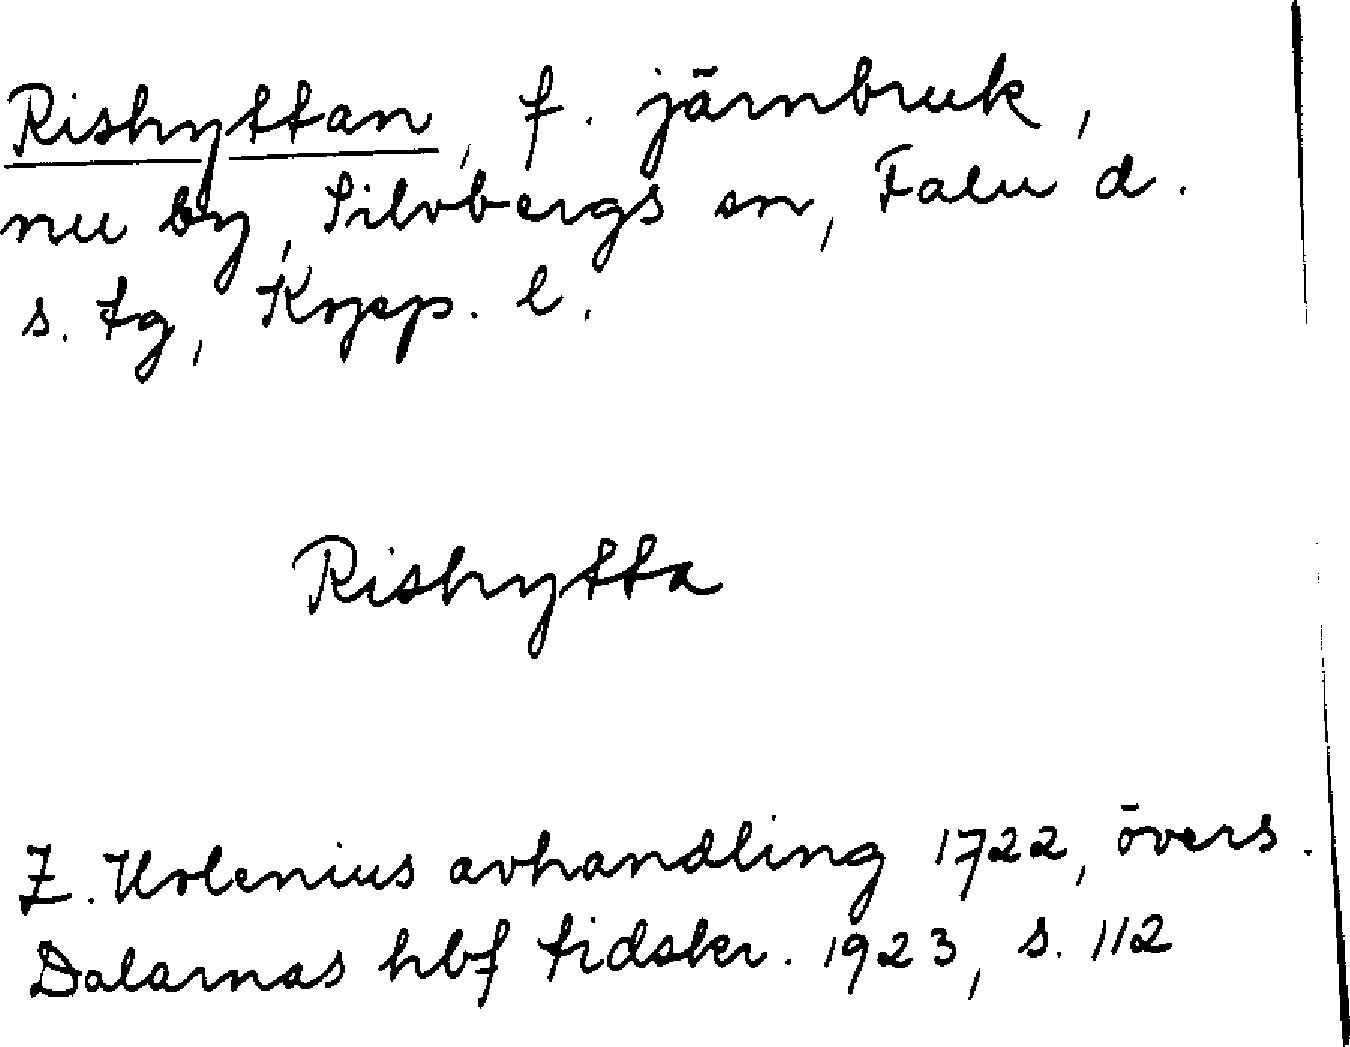 Rishyttan, f. järnbruk,
nu by, Silvbergs sn, Falu d.
s. tg, Kopp. l.
Rishytta
Z. Holenius avhandling 1722, övers.
Dalarnas hbf tidskr. 1923, s. 112